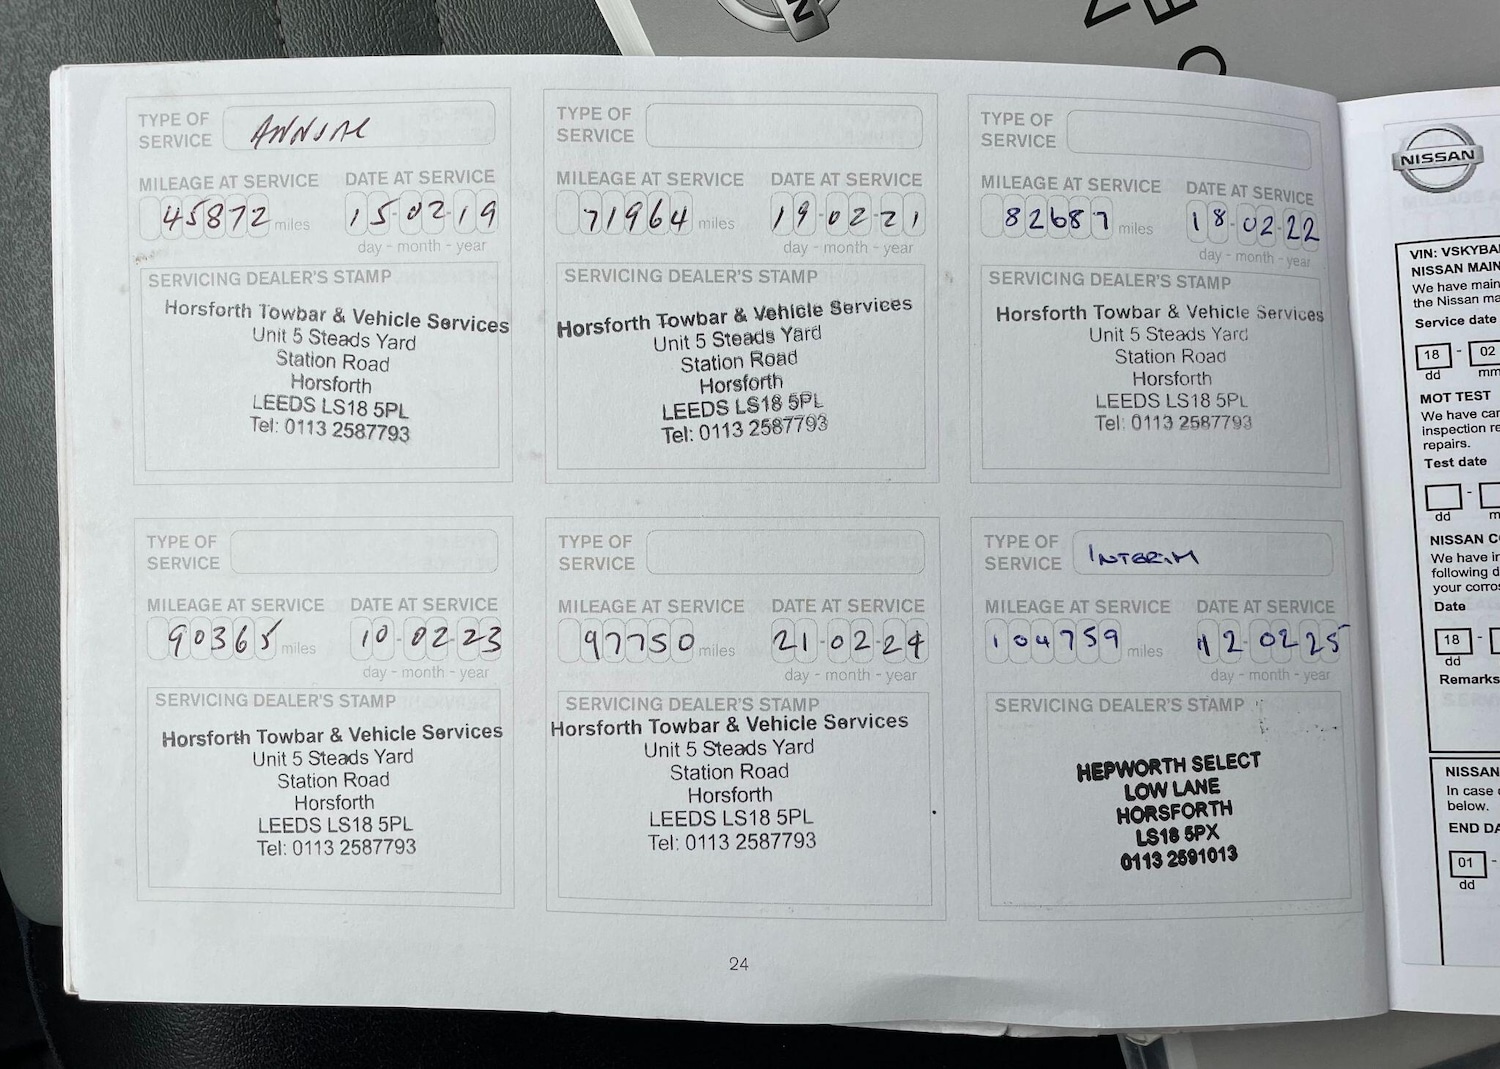 TYPE OF SERVICE ANNUAL
MILEAGE AT SERVICE DATE AT SERVICE
45872 miles 15-02-19
day - month - year
SERVICING DEALER'S STAMP
Horsforth Towbar & Vehicle Services
Unit 5 Steads Yard
Station Road
Horsforth
LEEDS LS18 5PL
Tel: 0113 2587793
TYPE OF SERVICE
MILEAGE AT SERVICE DATE AT SERVICE
71964 miles 19-02-21
day - month - year
SERVICING DEALER'S STAMP
Horsforth Towbar & Vehicle Services
Unit 5 Steads Yard
Station Road
Horsforth
LEEDS LS18 5PL
Tel: 0113 2587793
TYPE OF SERVICE
MILEAGE AT SERVICE DATE AT SERVICE
82687 miles 18-02-22
day - month - year
SERVICING DEALER'S STAMP
Horsforth Towbar & Vehicle Services
Unit 5 Steads Yard
Station Road
Horsforth
LEEDS LS18 5PL
Tel: 0113 2587793
TYPE OF SERVICE
MILEAGE AT SERVICE DATE AT SERVICE
90365 miles 10-02-23
day - month - year
SERVICING DEALER'S STAMP
Horsforth Towbar & Vehicle Services
Unit 5 Steads Yard
Station Road
Horsforth
LEEDS LS18 5PL
Tel: 0113 2587793
TYPE OF SERVICE
MILEAGE AT SERVICE DATE AT SERVICE
97750 miles 21-02-24
day - month - year
SERVICING DEALER'S STAMP
Horsforth Towbar & Vehicle Services
Unit 5 Steads Yard
Station Road
Horsforth
LEEDS LS18 5PL
Tel: 0113 2587793
TYPE OF SERVICE INTERIM
MILEAGE AT SERVICE DATE AT SERVICE
104759 miles 12-02-25
day - month - year
SERVICING DEALER'S STAMP
HEPWORTH SELECT
LOW LANE
HORSFORTH
LS18 5PX
0113 2591013
24
NISSAN
VIN: VSKYBA
NISSAN MAIN
We have main
the Nissan ma
Service date
18 - 02
dd mm
MOT TEST
We have car
inspection re
repairs.
Test date
dd m
NISSAN CO
We have in
following d
your corros
Date
18 -
dd
Remarks
NISSAN
In case o
below.
END DA
01 -
dd